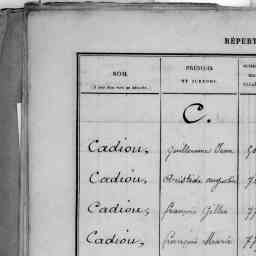 RÉPERT
NOM. PRÉNOMS
ET SURNOMS.
C.
Cadiou, Guillaume Jean
Cadiou, Aristide Auguste
Cadiou, François Gilles
Cadiou, François Marie